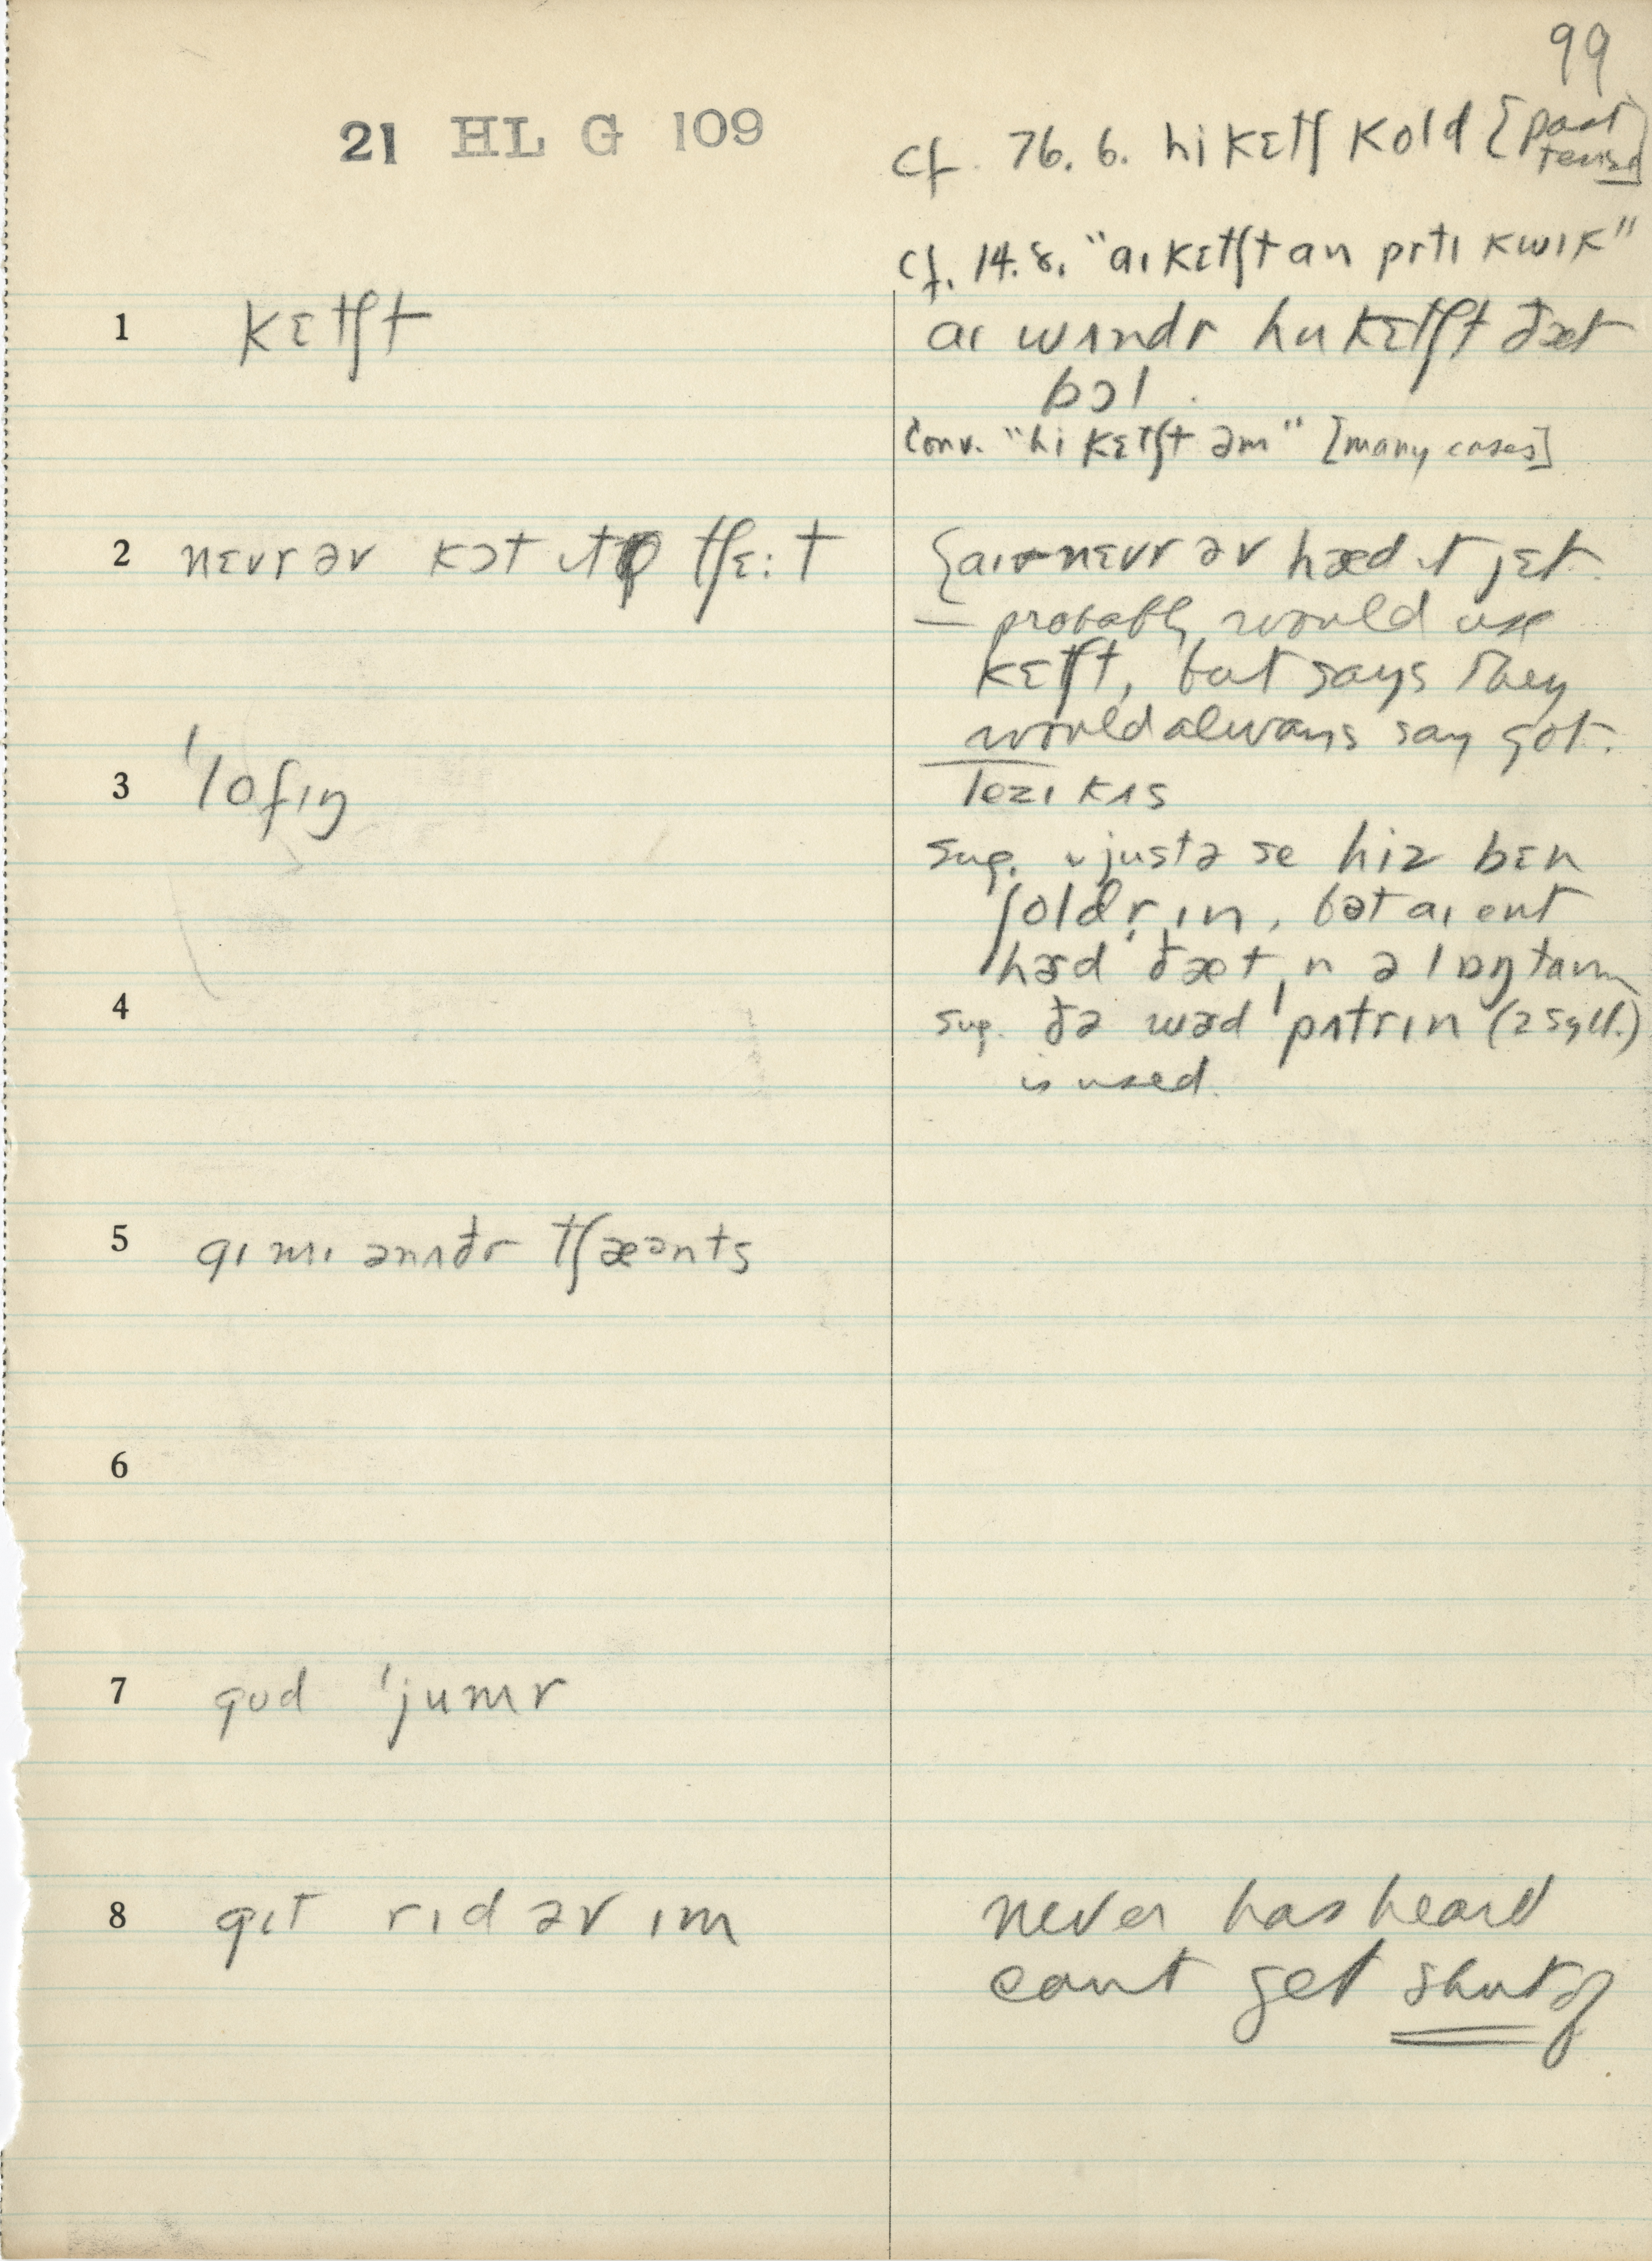 99
21 HL G 109
cf. 76. 6. hi kɛtʃ kold [past
tense]
cf. 14. 8. "aɪ kɛtʃt an prtɪ kwɪk"
1 kɛtʃt
aɪ wʌndr hu kɛtʃt ðæt
bɔl.
Conv. "hi kɛtʃt əm" [many cases]
2 nɛvr əv kɔt ɪt tʃɛ:t
{aɪ nɛvr əv hæd ɪt jɛt.
— probably would use
kɛtʃt, but says they
would always say got.
3 'lofɪŋ
lezɪ kʌs
sug. justə se hiz bɛn
ʃoldr̩ɪn, bət aɪ ent
hɜd ðæt ɪn ə lɒŋ taɪm
4
sug. ðə wɜd 'pʌtrɪn (2 syll.)
is used.
5 gɪ mɪ ənʌðr tʃæənts
6
7 gʊd 'jumr
8 gɪt rɪd əv ɪm
never has heard
can't get shut of